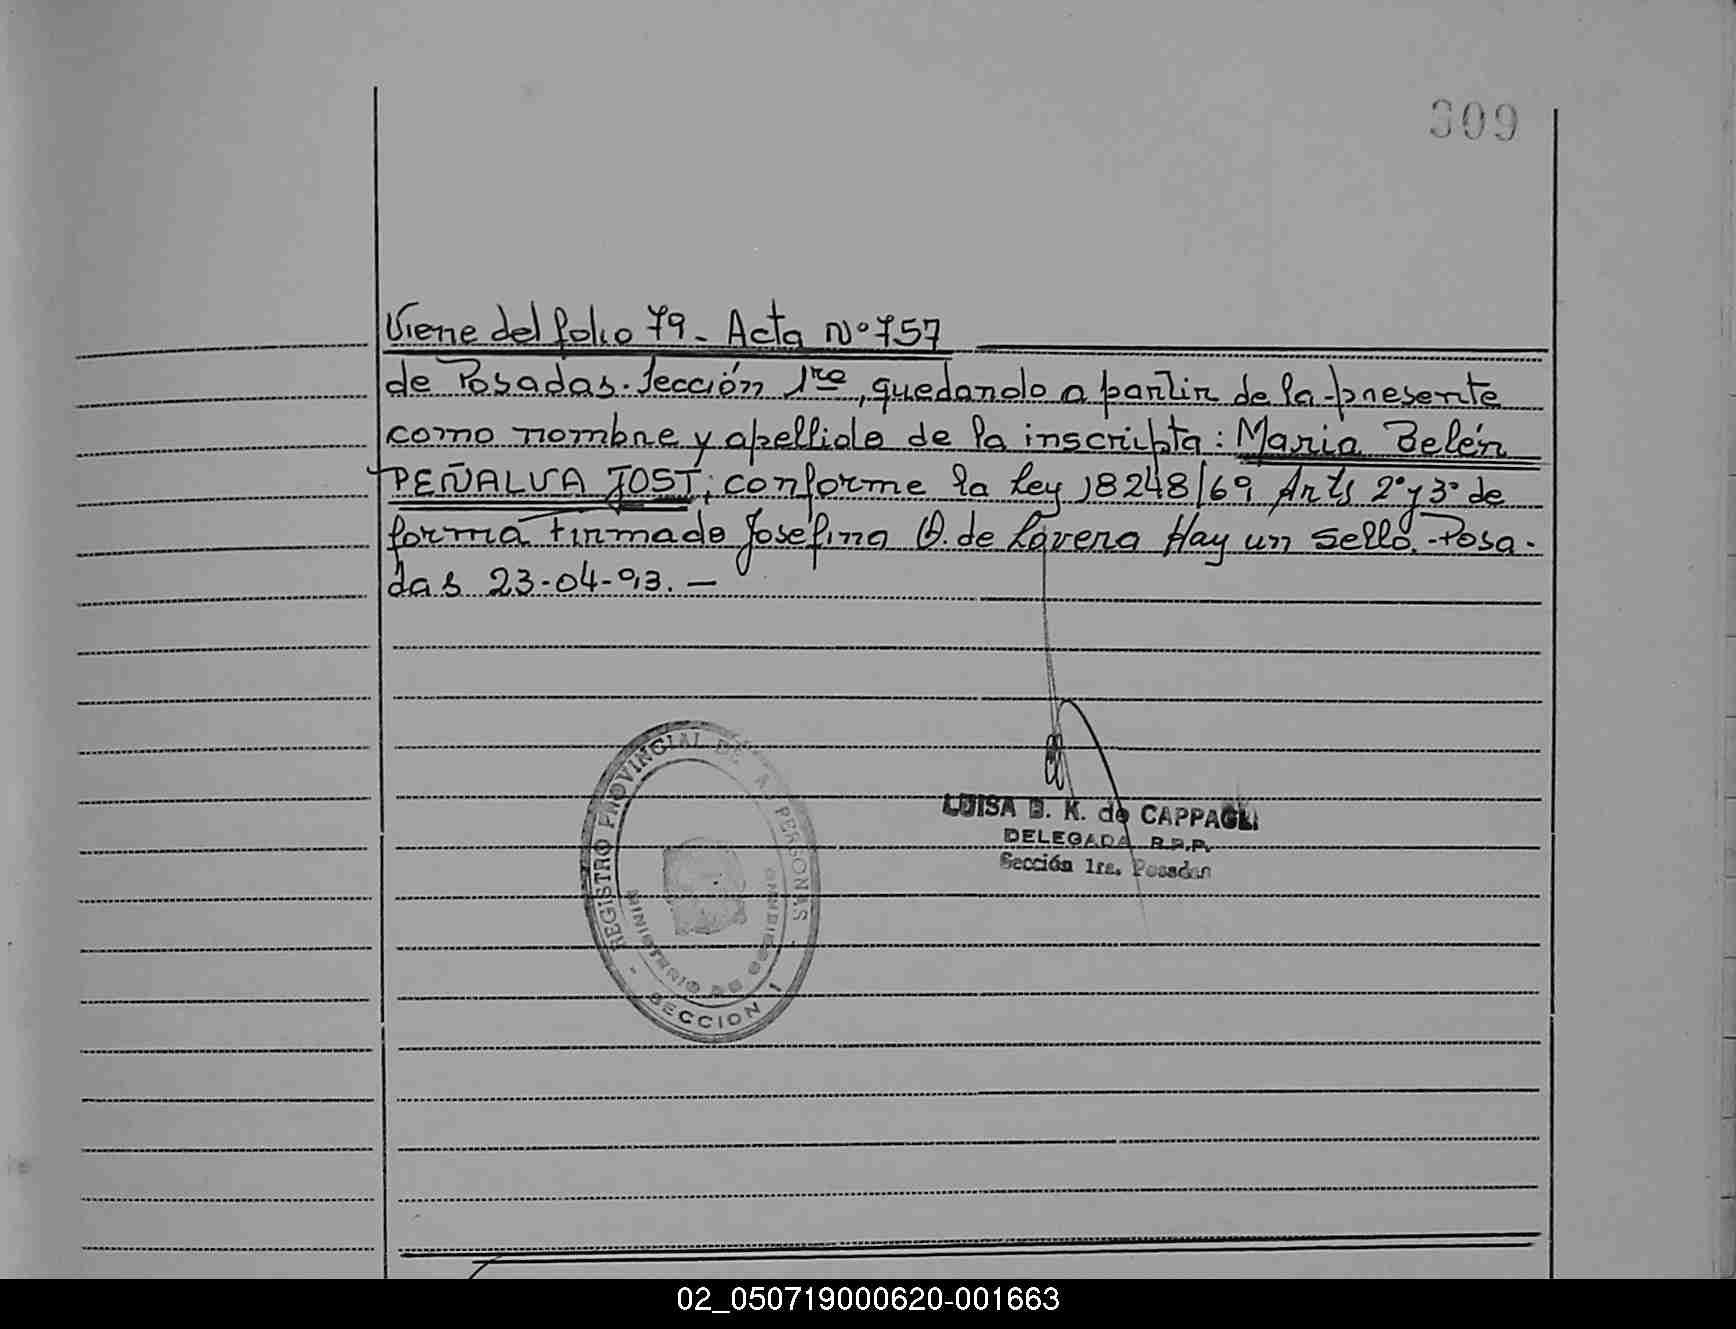 309
Viene del folio 79 - Acta Nº 757
de Posadas. Sección 1ra, quedando a partir de la presente
como nombre y apellido de la inscripta: Maria Belén
PEÑALVA JOST, conforme la Ley 18248/69 Arts 2º y 3º de
forma firmado Josefina O. de Lavera Hay un sello. - Posa-
das 23-04-93. —
REGISTRO PROVINCIAL DE PERSONAS
MINISTERIO DE GOBIERNO
SECCION 1
LUISA B. K. de CAPPAGLI
DELEGADA R.P.P.
Sección 1ra. Posadas
02_050719000620-001663